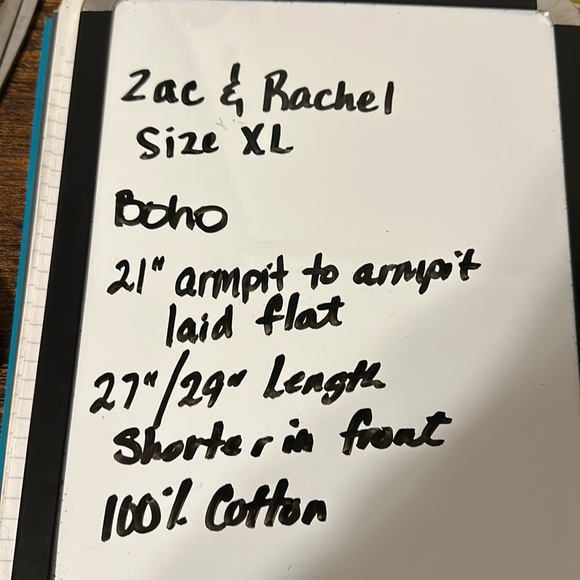 Zac & Rachel
Size XL
Boho
21" armpit to armpit
laid flat
27"/29" Length
Shorter in front
100% Cotton